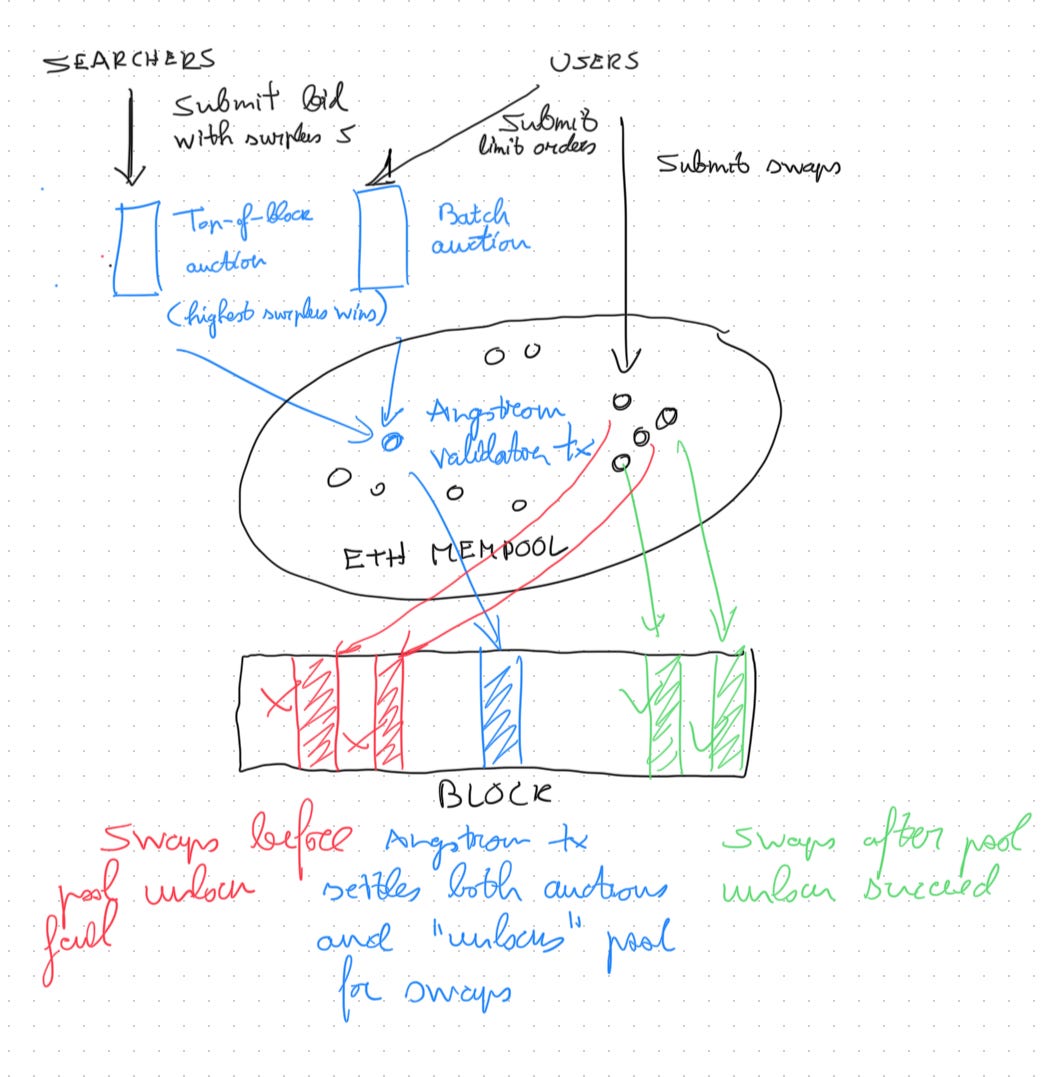 SEARCHERS
USERS
Submit bid
with surplus S
Submit
limit orders
Submit swaps
Top-of-block
auction
(highest surplus wins)
Batch
auction
Angstrom
validator tx
ETH MEMPOOL
BLOCK
Swaps before
pool unlock
fail
Angstrom tx
settles both auctions
and "unlocks" pool
for swaps
Swaps after pool
unlock succeed